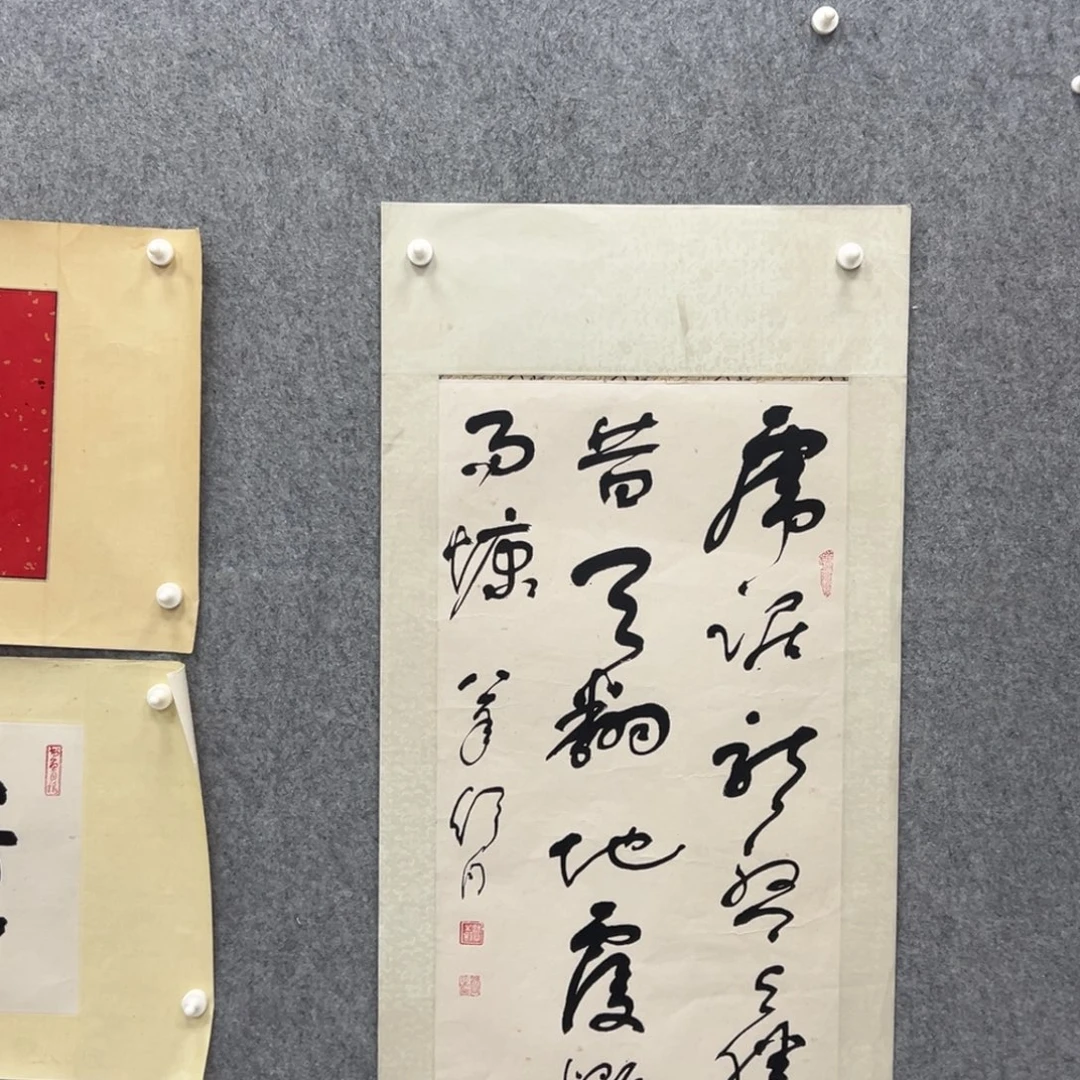 虎踞龍盤今勝
昔天翻地覆慨
而慷
舒同